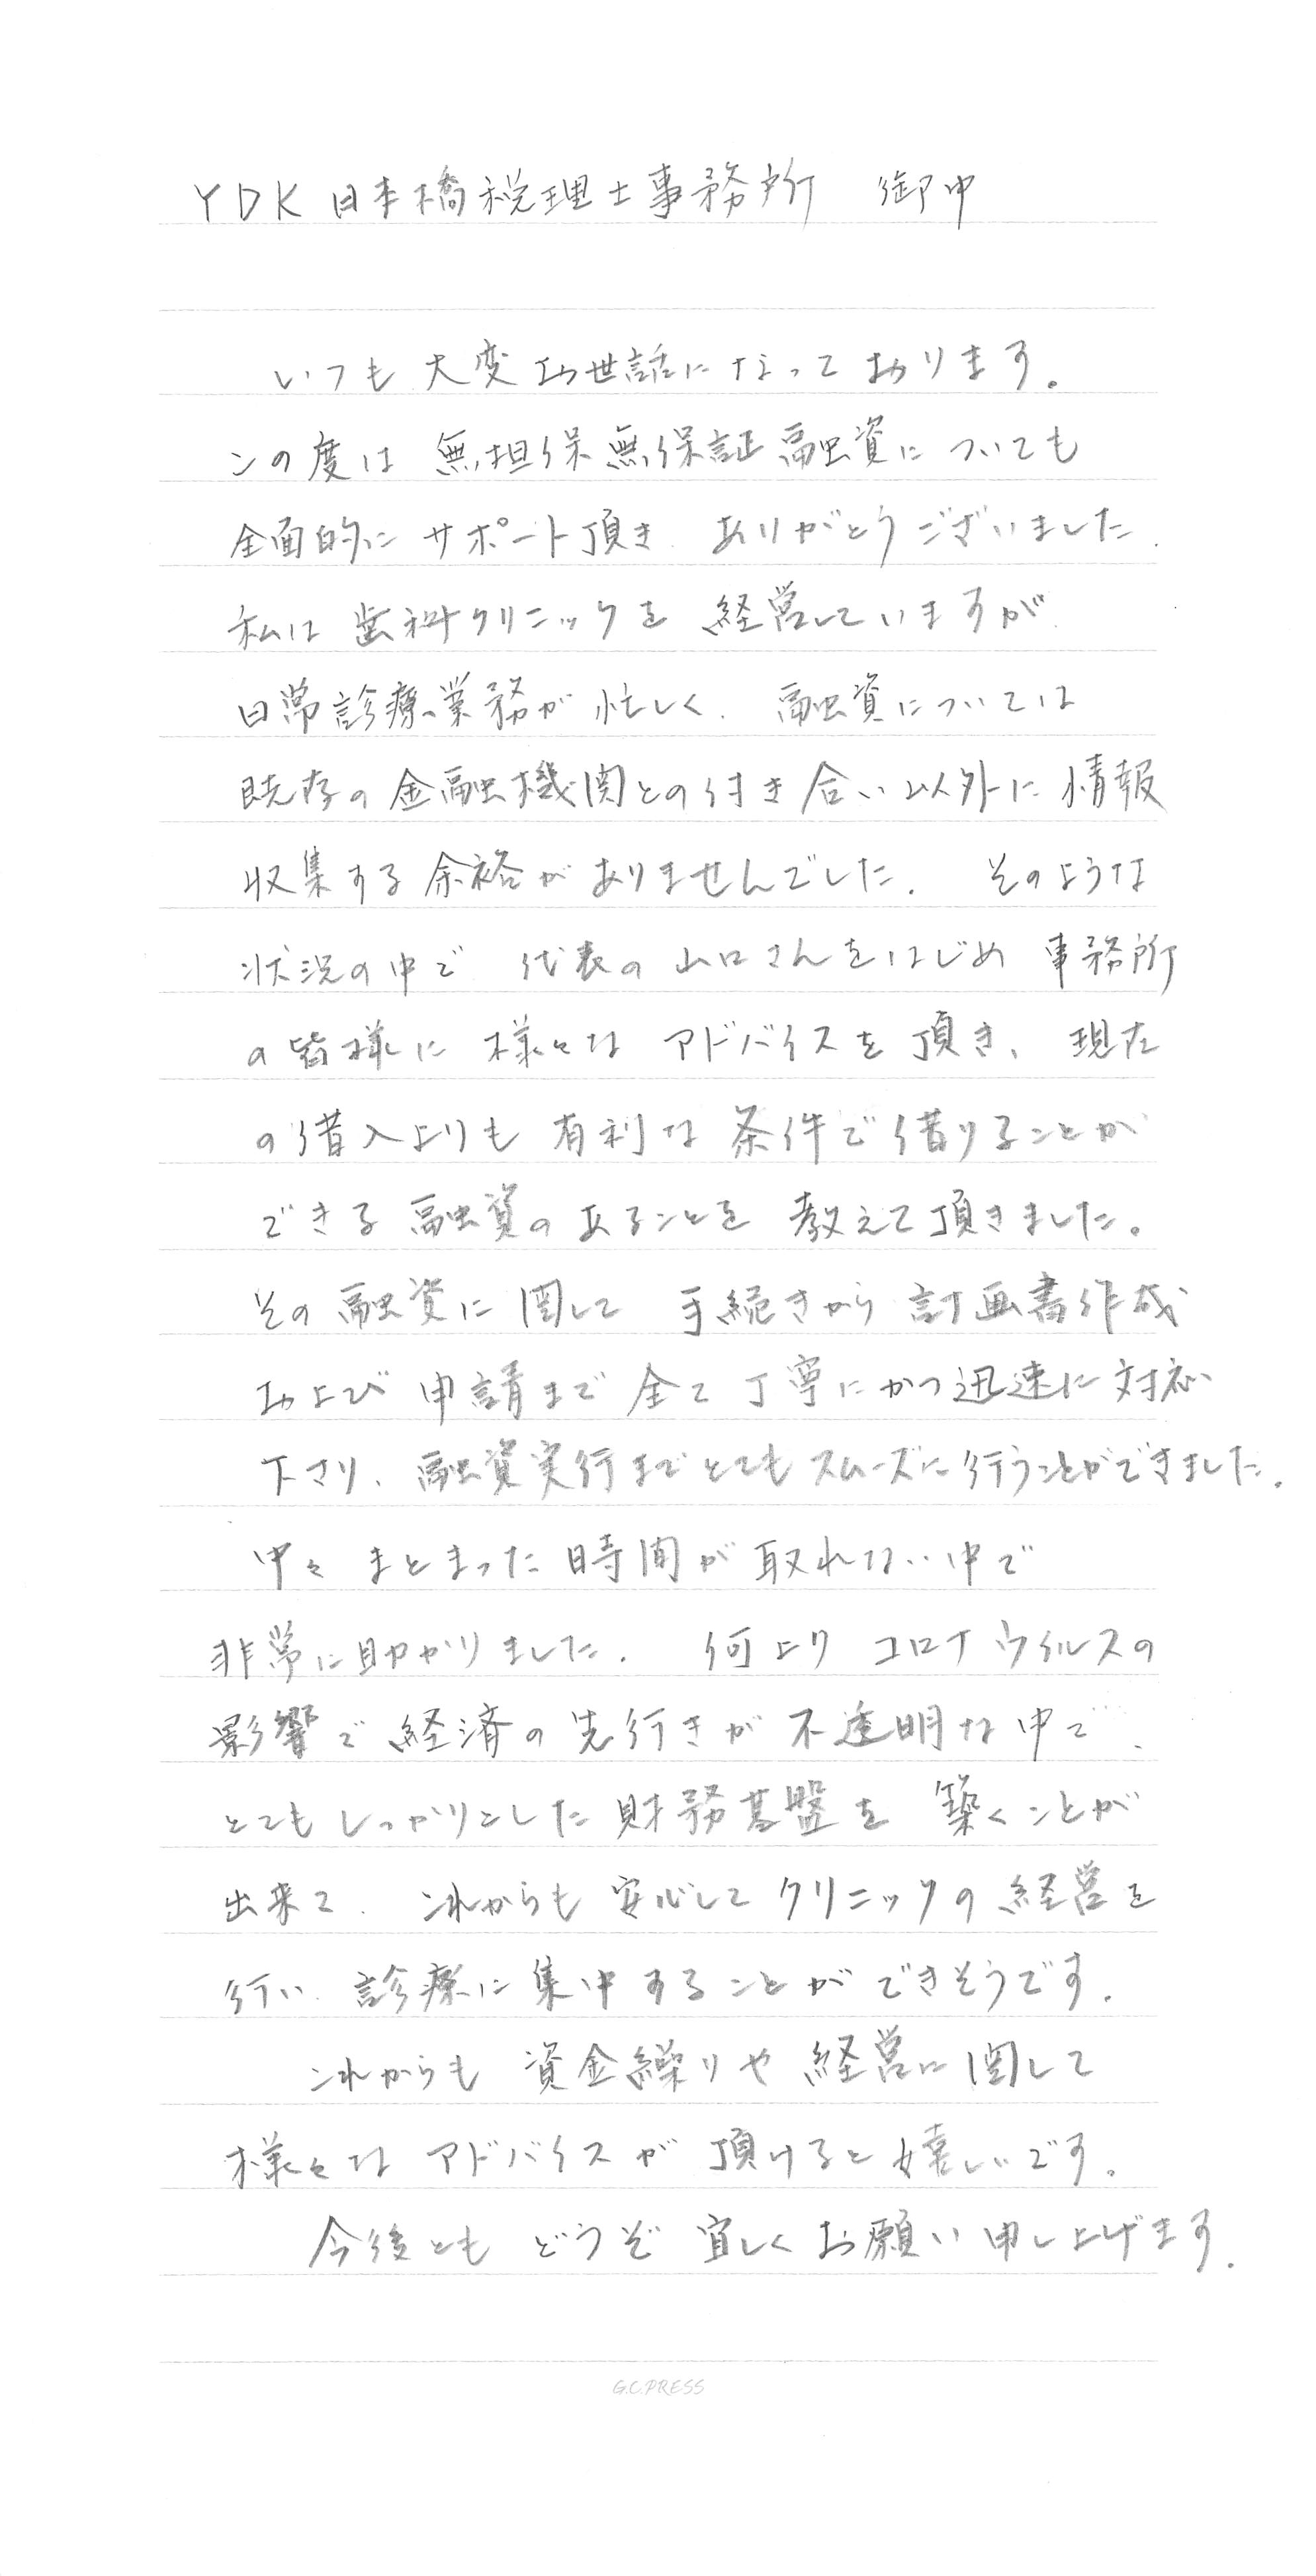 YDK日本橋税理士事務所 御中
いつも大変お世話になっております。
この度は 無担保無保証融資についても
全面的にサポート頂き、ありがとうございました。
私は歯科クリニックを経営していますが、
日常診療業務が忙しく、融資については
既存の金融機関との付き合い以外に情報
収集する余裕がありませんでした。 そのような
状況の中で 代表の山口さんをはじめ 事務所
の皆様に様々なアドバイスを頂き、現在
の借入よりも有利な条件で借りることが
できる融資のあることを教えて頂きました。
その融資に関して 手続きから計画書作成
および申請まで全て丁寧にかつ迅速に対応
下さり、融資実行までとてもスムーズに行うことができました。
中々まとまった時間が取れない中で
非常に助かりました。 何よりコロナウイルスの
影響で経済の先行きが不透明な中で、
とてもしっかりとした財務基盤を築くことが
出来て、これからも安心してクリニックの経営を
行い、診療に集中することができそうです。
これからも資金繰りや経営に関して
様々なアドバイスが頂けると嬉しいです。
今後ともどうぞ宜しくお願い申し上げます。
G.C.PRESS